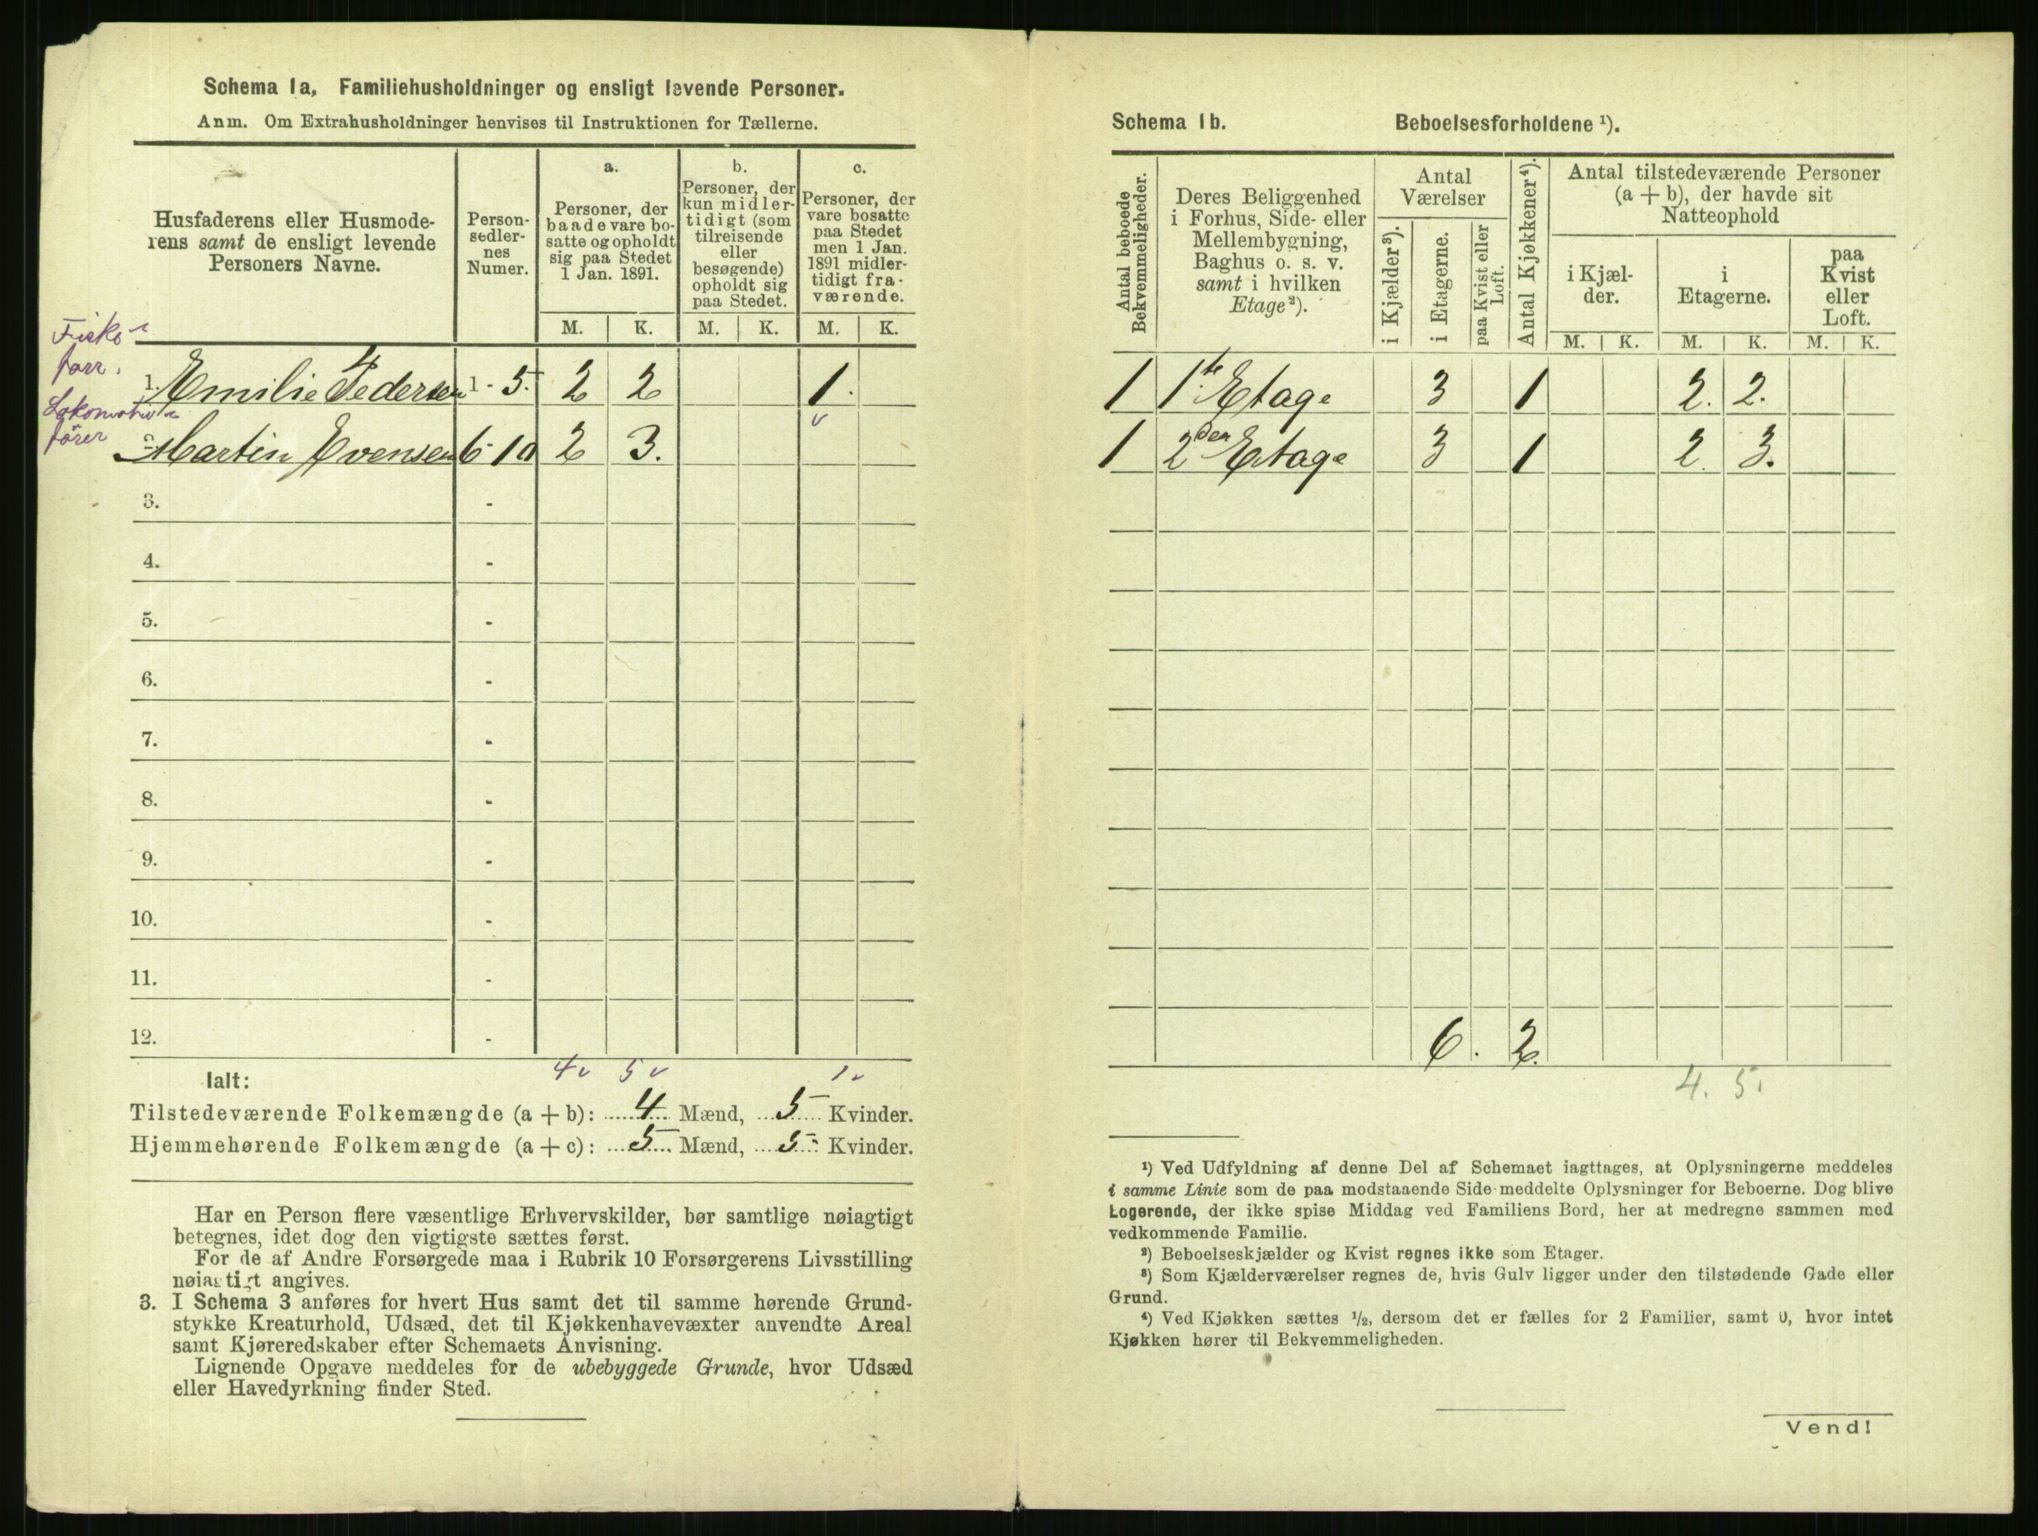 Schema 1a, Familiehusholdninger og ensligt levende Personer.
Anm. Om Extrahusholdninger henvises til Instruktionen for Tællerne.
Husfaderens eller Husmode-
rens samt de ensligt levende
Personers Navne.
Person-
sedler-
nes
Numer.
a.
Personer, der
baade vare bo-
satte og opholdt
sig paa Stedet
1 Jan. 1891.
b.
Personer, der
kun midler-
tidigt (som
tilreisende
eller
besøgende)
opholdt sig
paa Stedet.
c.
Personer, der
vare bosatte
paa Stedet
men 1 Jan.
1891 midler-
tidigt fra-
værende.
M. K. M. K. M. K.
1. Emilie Pedersen 1 - 5. 2 2 1.
Lokomotiv
fører
2. Martin Evensen 6 - 10 2 3.
3. -
4. -
5. -
6. -
7. -
8. -
9. -
10. -
11. -
12. -
4 v 5 v 1 v
Ialt:
Tilstedeværende Folkemængde (a + b): 4 Mænd, 5 Kvinder.
Hjemmehørende Folkemængde (a + c): 5 Mænd, 5 Kvinder.
Har en Person flere væsentlige Erhvervskilder, bør samtlige nøiagtigt
betegnes, idet dog den vigtigste sættes først.
For de af Andre Forsørgede maa i Rubrik 10 Forsørgerens Livsstilling
nøiagtigt angives.
3. I Schema 3 anføres for hvert Hus samt det til samme hørende Grund-
stykke Kreaturhold, Udsæd, det til Kjøkkenhavevæxter anvendte Areal
samt Kjøreredskaber efter Schemaets Anvisning.
Lignende Opgave meddeles for de ubebyggede Grunde, hvor Udsæd
eller Havedyrkning finder Sted.
Schema 1b. Beboelsesforholdene ¹).
Antal beboede
Bekvemmeligheder.
Deres Beliggenhed
i Forhus, Side- eller
Mellembygning,
Baghus o. s. v.
samt i hvilken
Etage²).
Antal
Værelser
i Kjælder³).
i Etagerne.
paa Kvist eller
Loft.
Antal Kjøkkener⁴).
Antal tilstedeværende Personer
(a + b), der havde sit
Natteophold
i Kjæl-
der.
i
Etagerne.
paa
Kvist
eller
Loft.
M. K. M. K. M. K.
1 1ste Etage 3 1 2. 2.
1 2den Etage 3 1 2. 3.
6. 2.
4. 5.
¹) Ved Udfyldning af denne Del af Schemaet iagttages, at Oplysningerne meddeles
i samme Linie som de paa modstaaende Side meddelte Oplysninger for Beboerne. Dog blive
Logerende, der ikke spise Middag ved Familiens Bord, her at medregne sammen med
vedkommende Familie.
²) Beboelseskjælder og Kvist regnes ikke som Etager.
³) Som Kjælderværelser regnes de, hvis Gulv ligger under den tilstødende Gade eller
Grund.
⁴) Ved Kjøkken sættes ½, dersom det er fælles for 2 Familier, samt 0, hvor intet
Kjøkken hører til Bekvemmeligheden.
Vend!